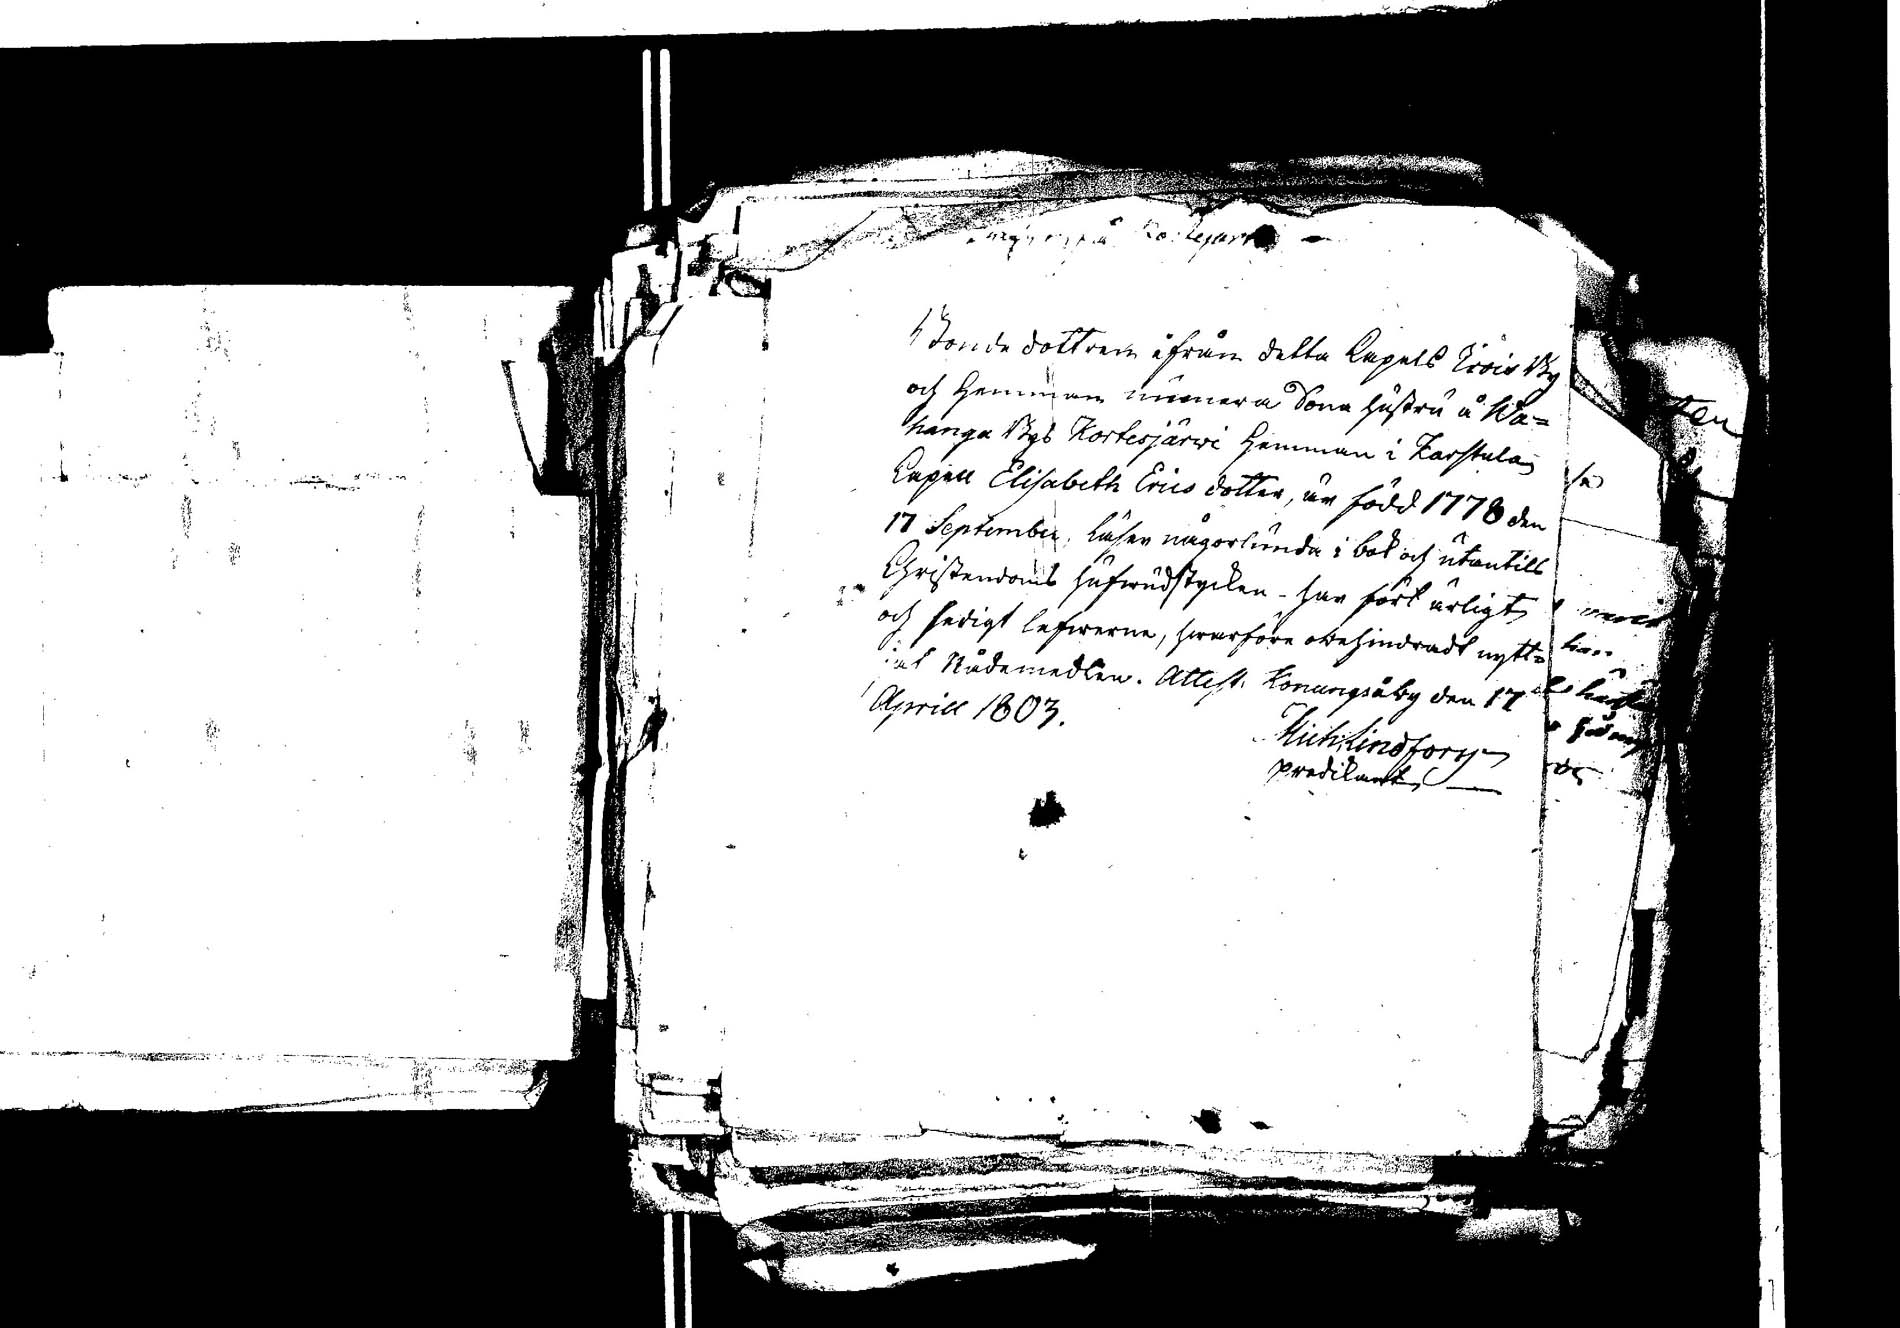 Bonde dottren ifrån detta Capels Kivis By
och Hemman numera Sone hustru å Wa=
hanga Bys Kortesjärwi Hemman i Karstula
Capell Elisabeth Erics dotter, är född 1778 den
17 September, läser någorlunda i bok och utantill
Christendoms hufwudstycken - har fört ärligt
och sedigt lefwerne, hwarföre obehindradt nytt=
jat Nådemedlen. Attest. Konungsåby den 17
Aprill 1803.
Mich: Lindfors
predikant